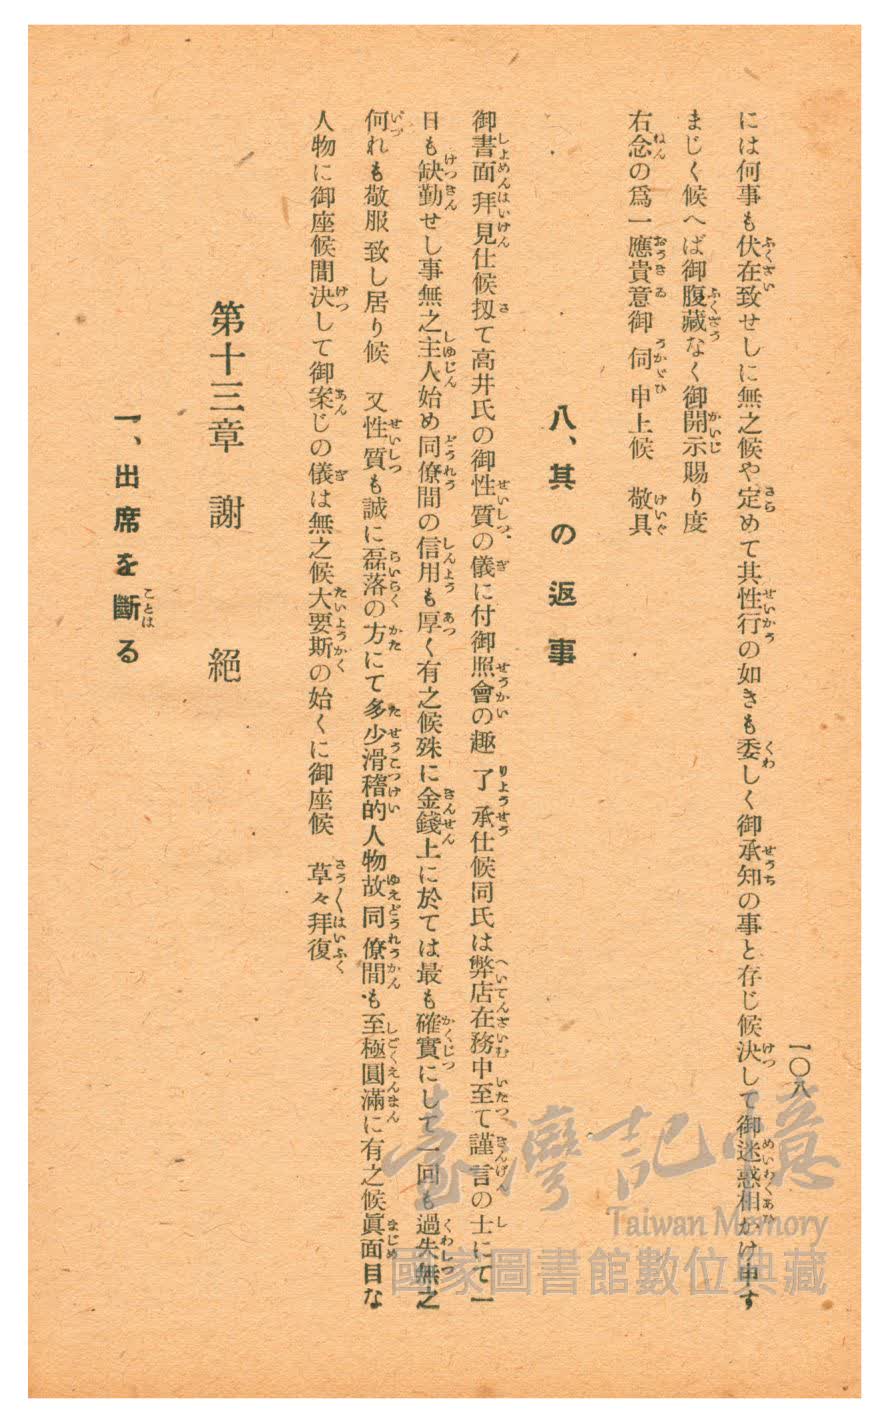 一〇八
には何事も伏在致せしに無之候や定めて其性行の如きも委しく御承知の事と存じ候決して御迷惑相かけ申す
まじく候へば御腹藏なく御開示賜り度
右念の爲一應貴意御伺申上候　敬具
八、其の返事
御書面拜見仕候扨て高井氏の御性質の儀に付御照會の趣了承仕候同氏は弊店在務中至て謹言の士にて一
日も缺勤せし事無之主人始め同僚間の信用も厚く有之候殊に金錢上に於ては最も確實にして一回も過失無之
何れも敬服致し居り候　又性質も誠に磊落の方にて多少滑稽的人物故同僚間も至極圓滿に有之候眞面目な
人物に御座候間決して御案じの儀は無之候大要斯の始くに御座候　草々拜復
第十三章　謝　絕
一、出席を斷る
臺灣記憶
Taiwan Memory
國家圖書館數位典藏